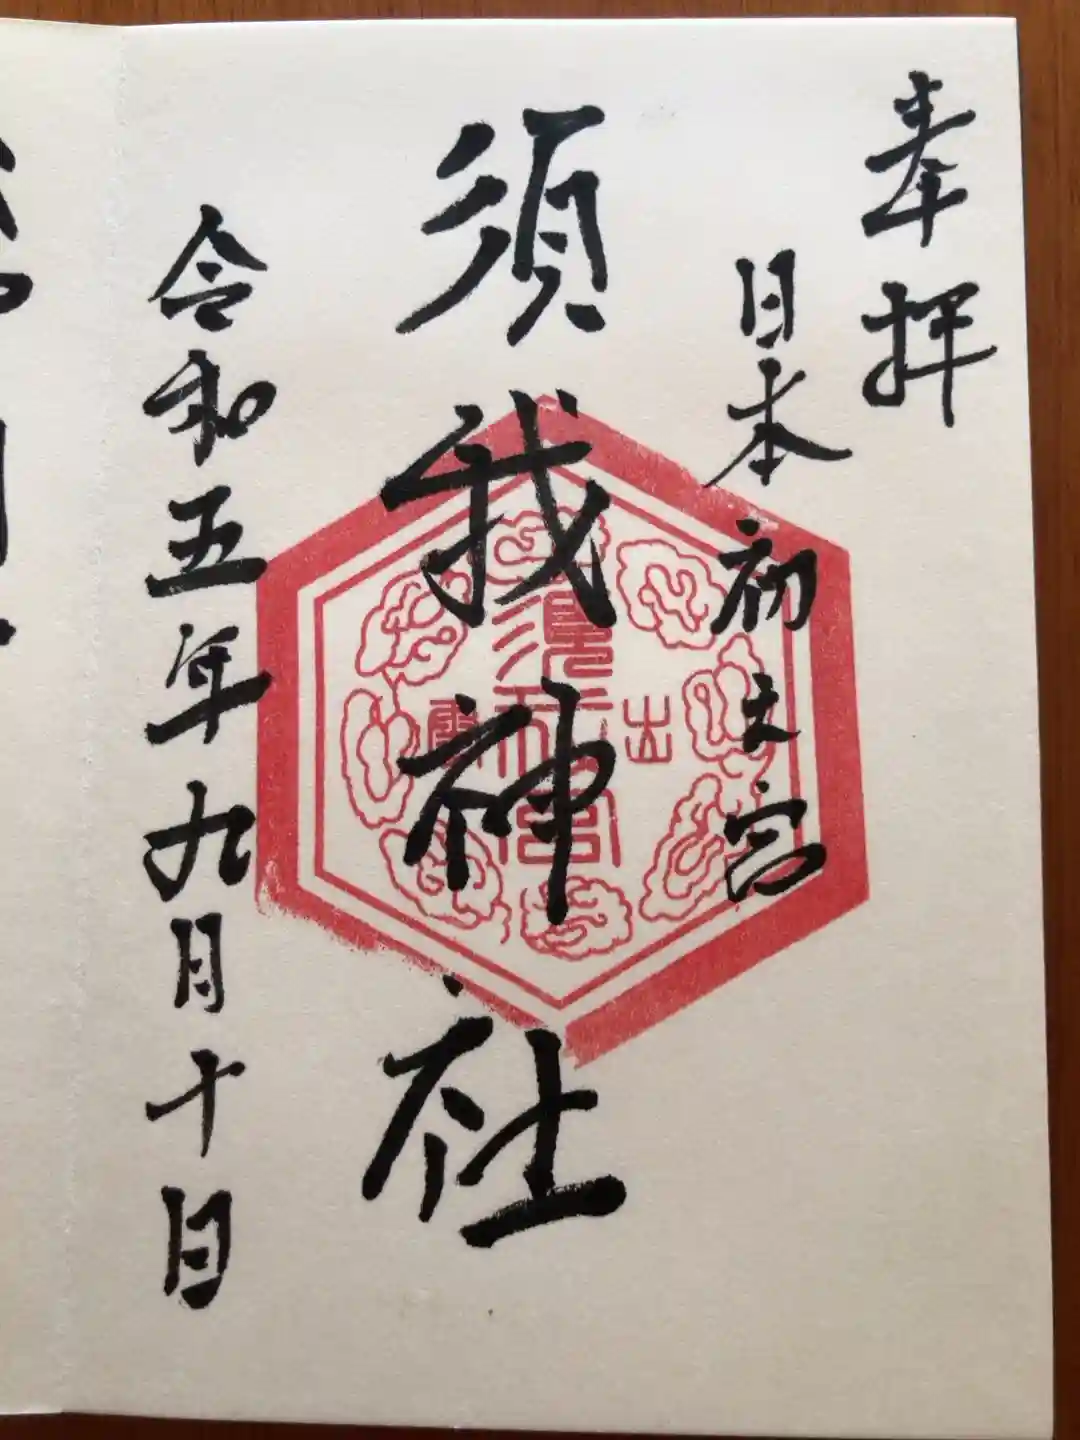 奉拝
日本初之宮
須我神社
令和五年九月十日
出雲